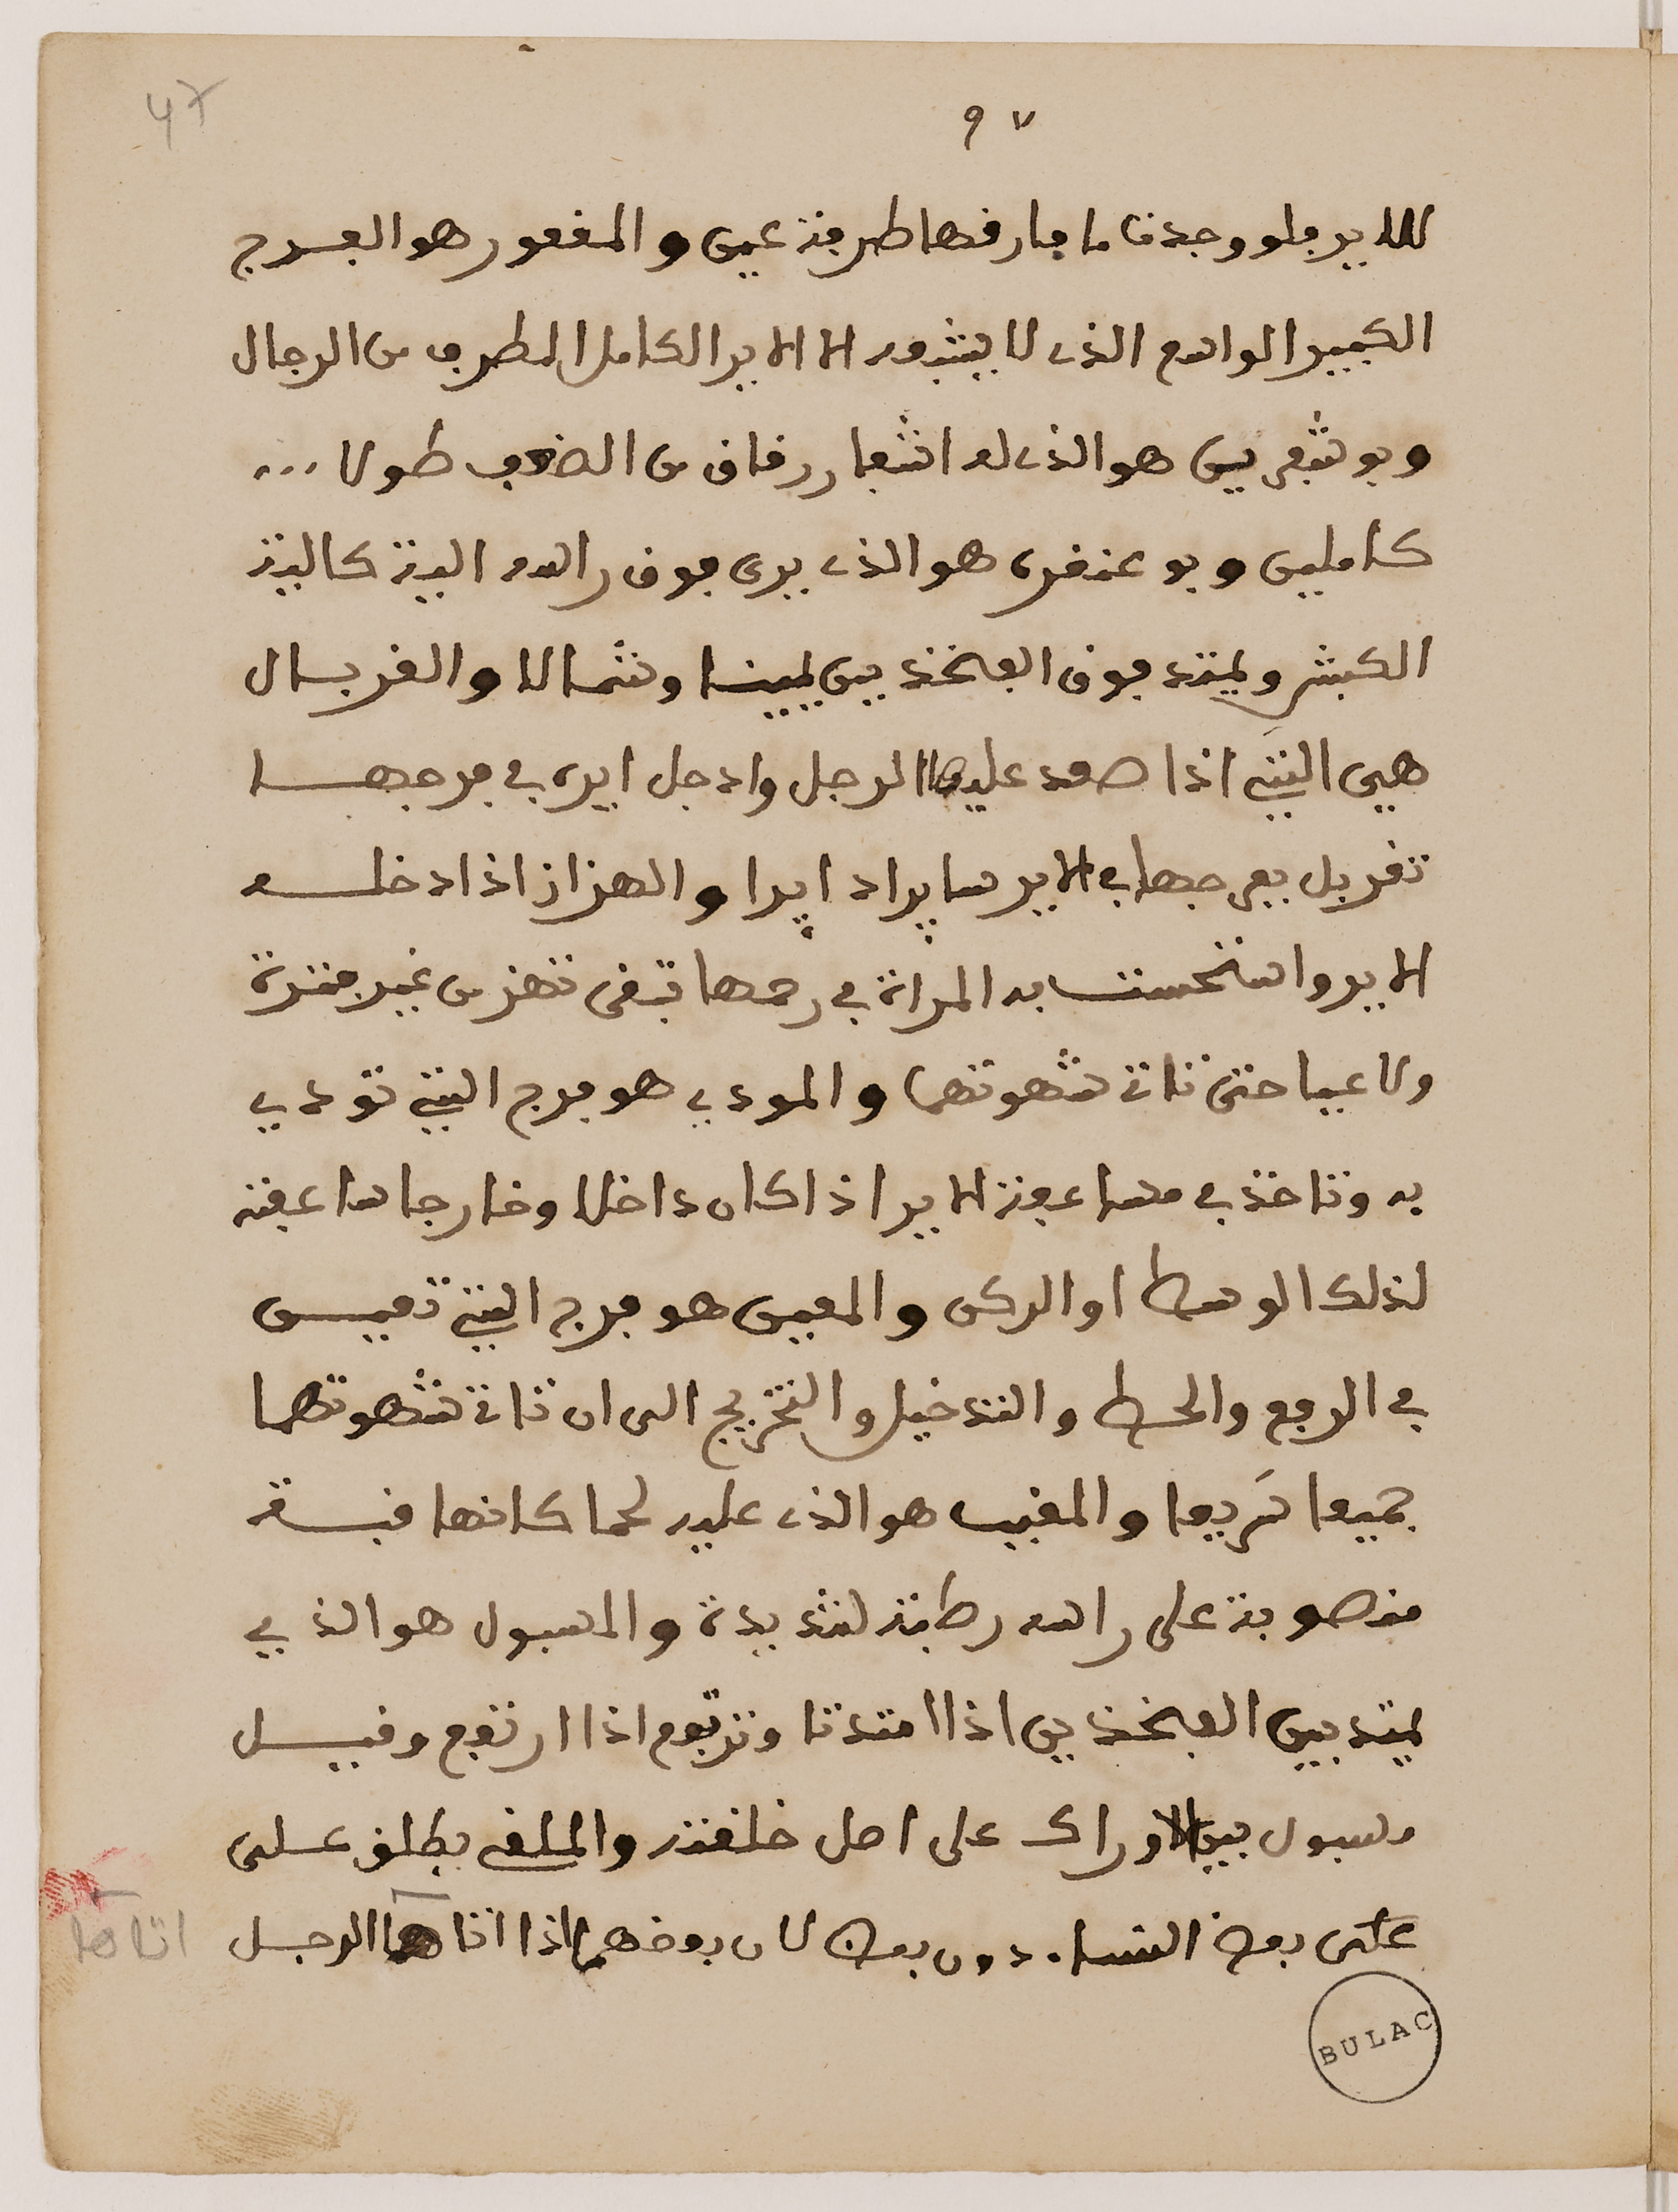 47
٩٧
للاير فلو وجدت ما فارقها طرفة عين والمقعور هو الفرج
الكبير الواسع الذى لا يشبعه الا الاير الكامل المطرق من الرجال
وبو شفرين هو الذى له اشفار رقاق من الضعف طولا ...
كاملين وبو عنقرة هو الذى يرى فوق راسه الية كالية
الكبش ويمتد فوق الفخذين يمينا وشمالا والغربال
هي التي اذا صعد عليها الرجل وادخل ايره في فرجها
تغربل بفرجها في الاير سايرا دايرا والهزاز اذا دخله
الاير واستحست به المراة في رحمها تبقى تهز من غير فترة
ولا عيا حتى تاتى شهوتهما والمودي هو فرج التي تودي
به وتاخذ في مساعفة الاير اذا كان داخلا وخارجا ساعفته
لذلك الوسط او الركن والمعين هو فرج التي تعين
في الرفع والحط والتدخيل والتخريج الى ان تاتى شهوتهما
جميعا سريعا والمقبب هو الذى عليه لحما كانها قبة
منصوبة على راسه رطبة شديدة والمسبول هو الذي
يمتد بين الفخذين اذا امتدتا وترتفع اذا ارتفع وقيل
مسبول بين الاوراك على اصل خلقته والملقى يطلق على
على بعض النساء دون بعض لان بعضهما اذا اتاها الرجل
اتاها
BULAC